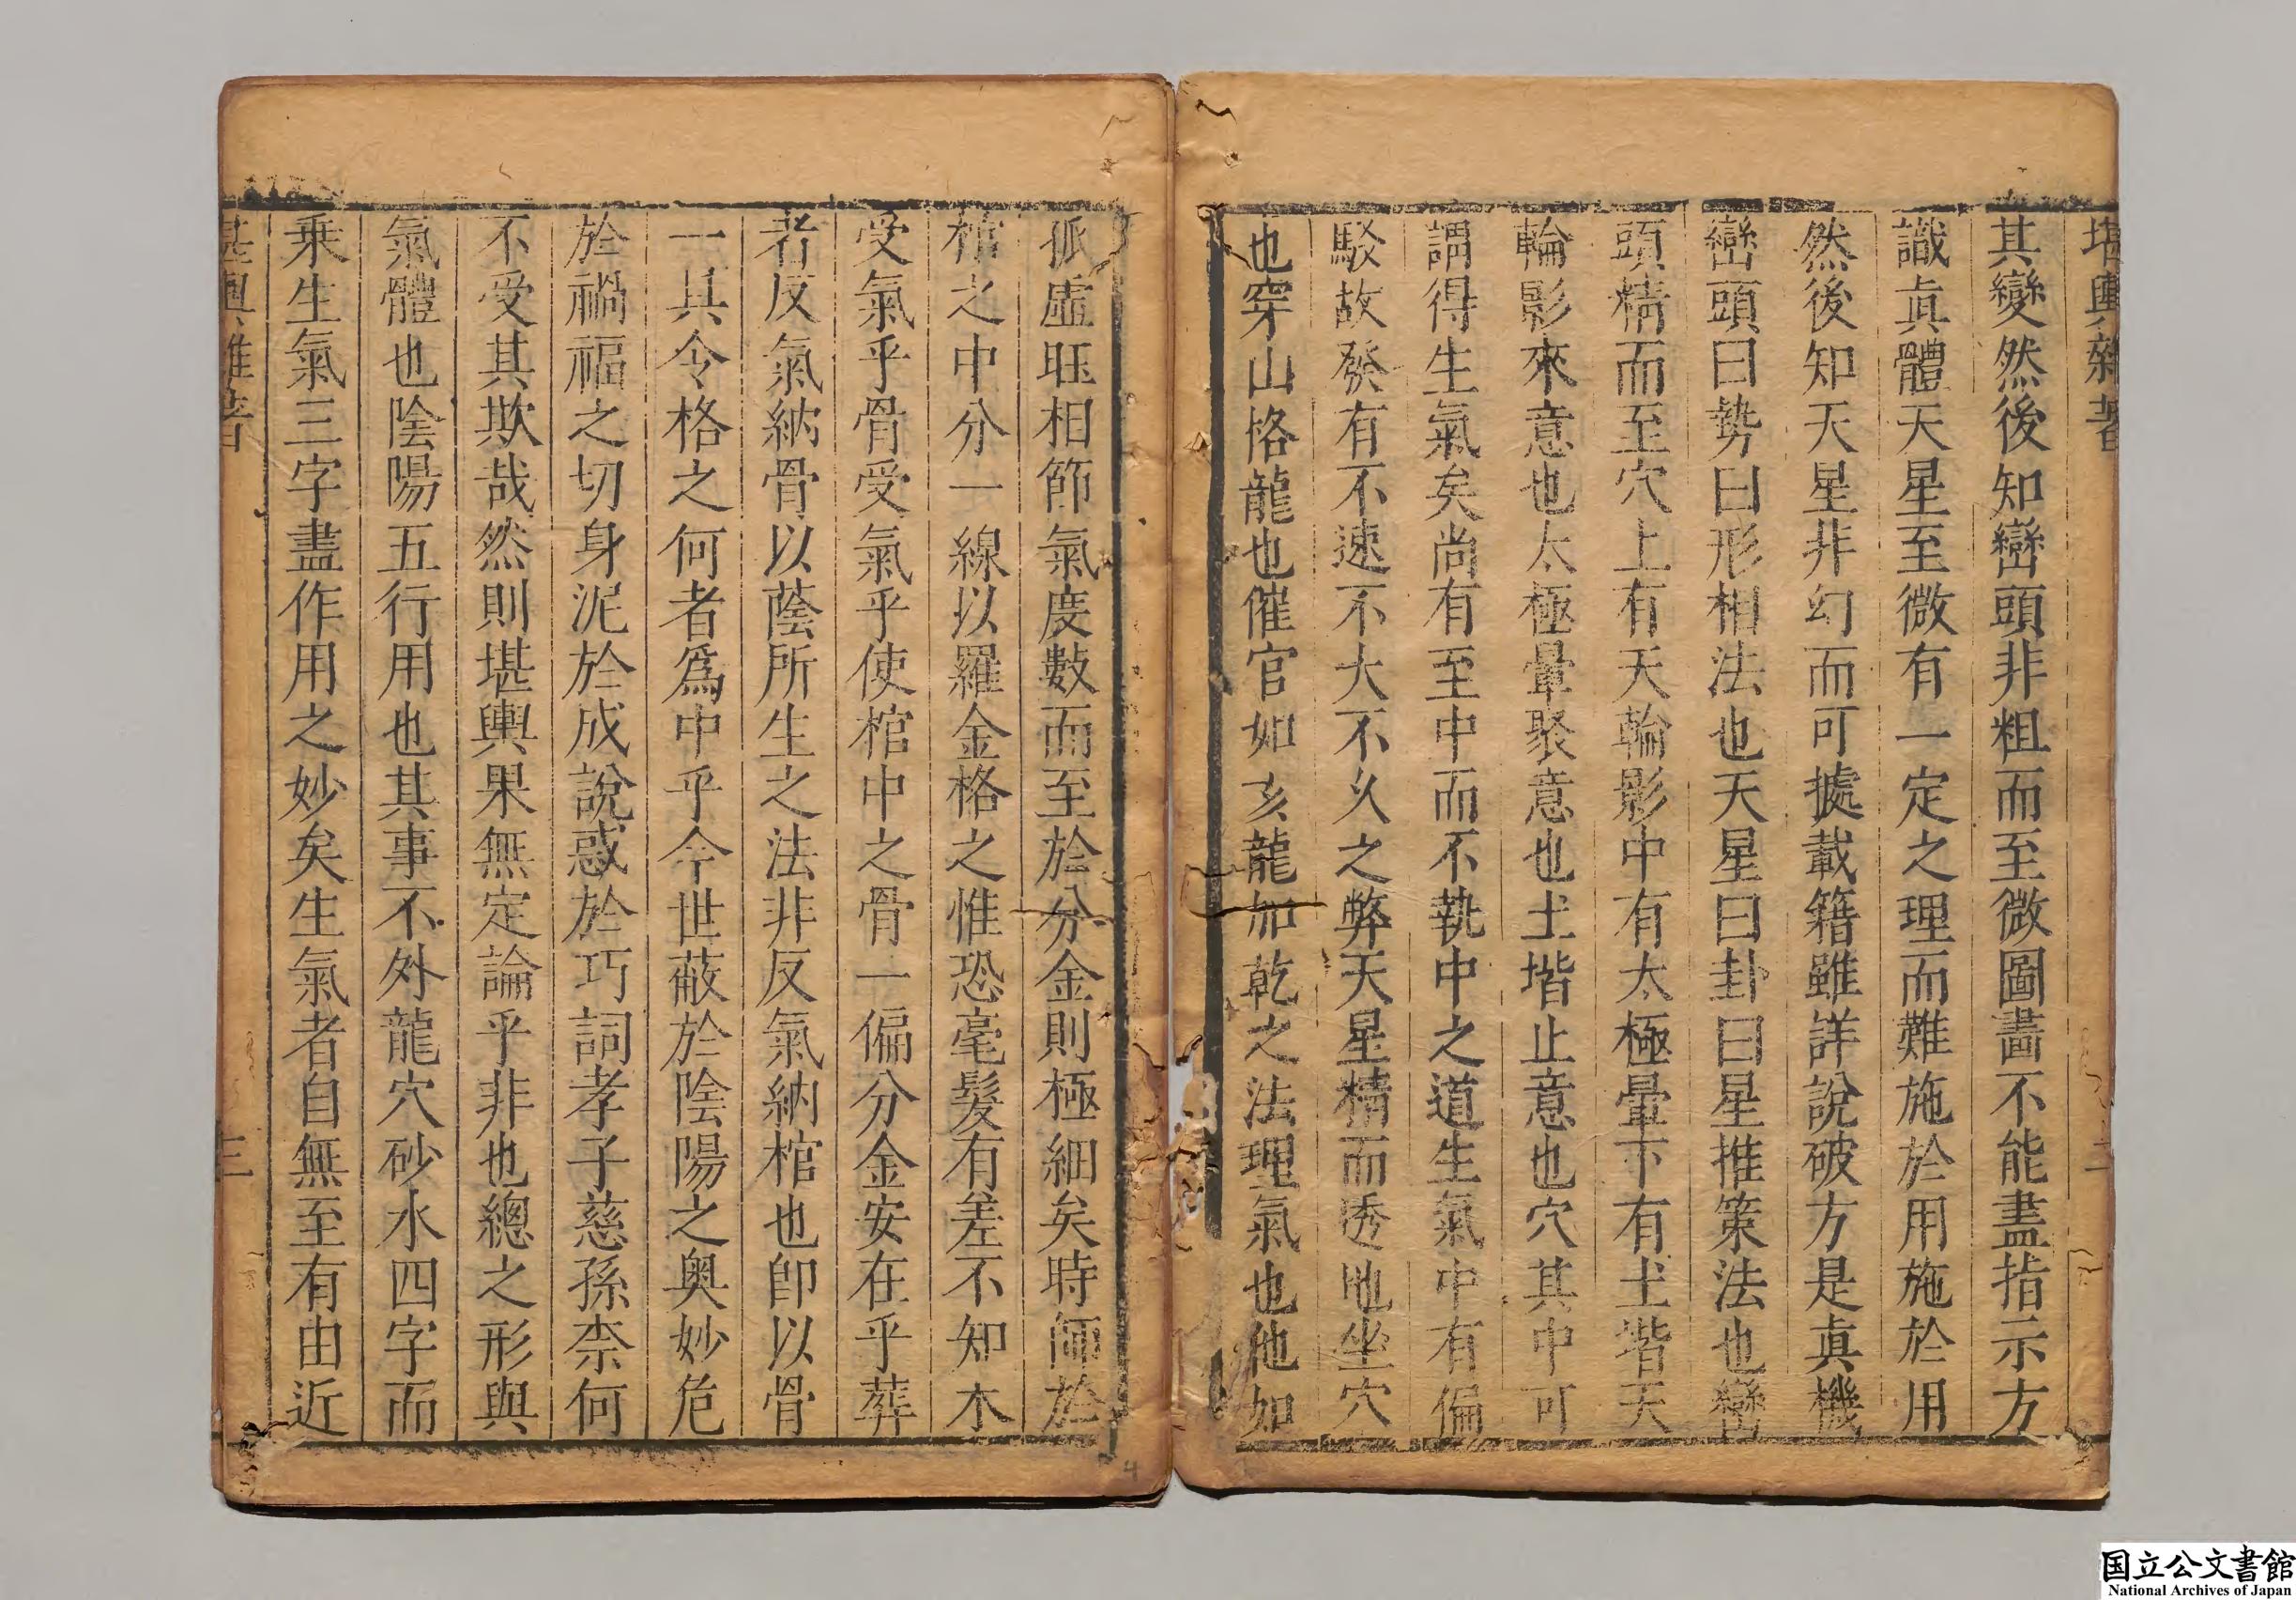 堪輿雜著
二
其變然後知巒頭非粗而至微圖畫不能盡指示方
識眞體天星至微有一定之理而難施於用施於用
然後知天星非幻而可據載籍雖詳說破方是眞機
巒頭曰勢曰形相法也天星曰卦曰星推策法也巒
頭精而至穴上有天輪影中有太極暈下有土堦天
輪影來意也太極暈聚意也土堦止意也穴其中可
謂得生氣矣尚有至中而不執中之道生氣中有偏
駁故發有不速不大不久之弊天星精而透地坐穴
也穿山格龍也催官如亥龍加乾之法理氣也他如
孤虛旺相節氣度數而至於分金則極細矣時師於
棺之中分一線以羅金格之惟恐毫髮有差不知木
受氣乎骨受氣乎使棺中之骨一偏分金安在乎葬
者反氣納骨以蔭所生之法非反氣納棺也卽以骨
一具令格之何者爲中乎今世蔽於陰陽之奥妙危
於禍福之切身泥於成說惑於巧詞孝子慈孫柰何
不受其欺哉然則堪輿果無定論乎非也總之形與
氣體也陰陽五行用也其事不外龍穴砂水四字而
乘生氣三字盡作用之妙矣生氣者自無至有由近
堪輿雜著
三
4
国立公文書館
National Archives of Japan